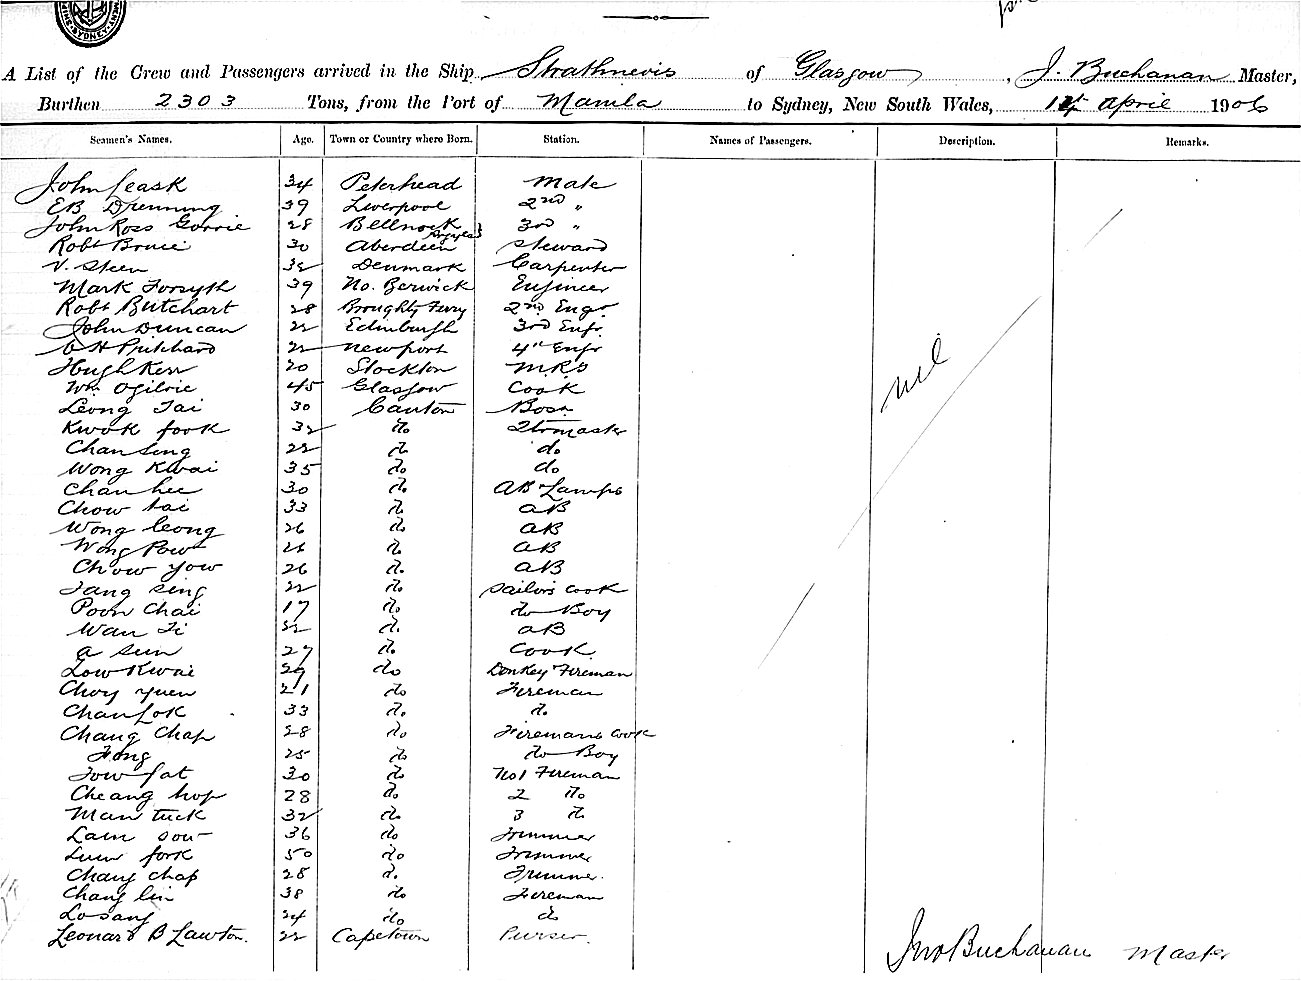 SYDNEY
A List of the Crew and Passengers arrived in the Ship Strathnevis of Glasgow, J. Buchanan Master,
Burthen 2303 Tons, from the Port of Manila to Sydney, New South Wales, April 1906
Seamen's Names. Age. Town or Country where Born. Station. Names of Passengers. Description. Remarks.
John Leask 34 Peterhead Mate
EB Drenning 39 Liverpool 2nd "
John Ross Gorrie 28 Bellnock 3rd "
Robt Bruce 30 Aberdeen Steward
V. Steen 32 Denmark Carpenter
Mark Forsyth 39 No. Berwick Engineer
Robt Butchart 28 Broughty Ferry 2nd Engr
John Duncan 22 Edinburgh 3rd Engr
Pritchard 22 Newport 4th Engr
Hugh Kerr 20 Stockton
Wm Ogilvie 45 Glasgow Cook
Leong Tai 30 Canton Bosn
Kwok fook 32 do Qtrmaster
Chan Sing 22 do do
Wong Kwai 35 do do
Chan hee 30 do AB Lamps
Chow tai 33 do AB
Wong leong 26 do AB
Wong Pow 26 do AB
Chow yow 26 do AB
Tang sing 22 do Sailors cook
Poon Chai 17 do do Boy
Wan Ti 22 do AB
a sun 27 do Cook
Low Kwai 29 do Donkey Fireman
Choy yuen 21 do Fireman
Chan Lok 33 do do
Chang Chap 28 do Firemans cook
Fong 25 do do Boy
Tow fat 30 do No1 Fireman
Cheang hop 28 do 2 do
Man tuck 32 do 3 do
Lam sow 36 do Trimmer
Luen fork 50 do Trimmer
Chang chap 28 do Trimmer
Chang lin 38 do Fireman
Lo sang 24 do do
Leonard B Lawton. 22 Capetown Purser.
nil
Jno Buchanan Master